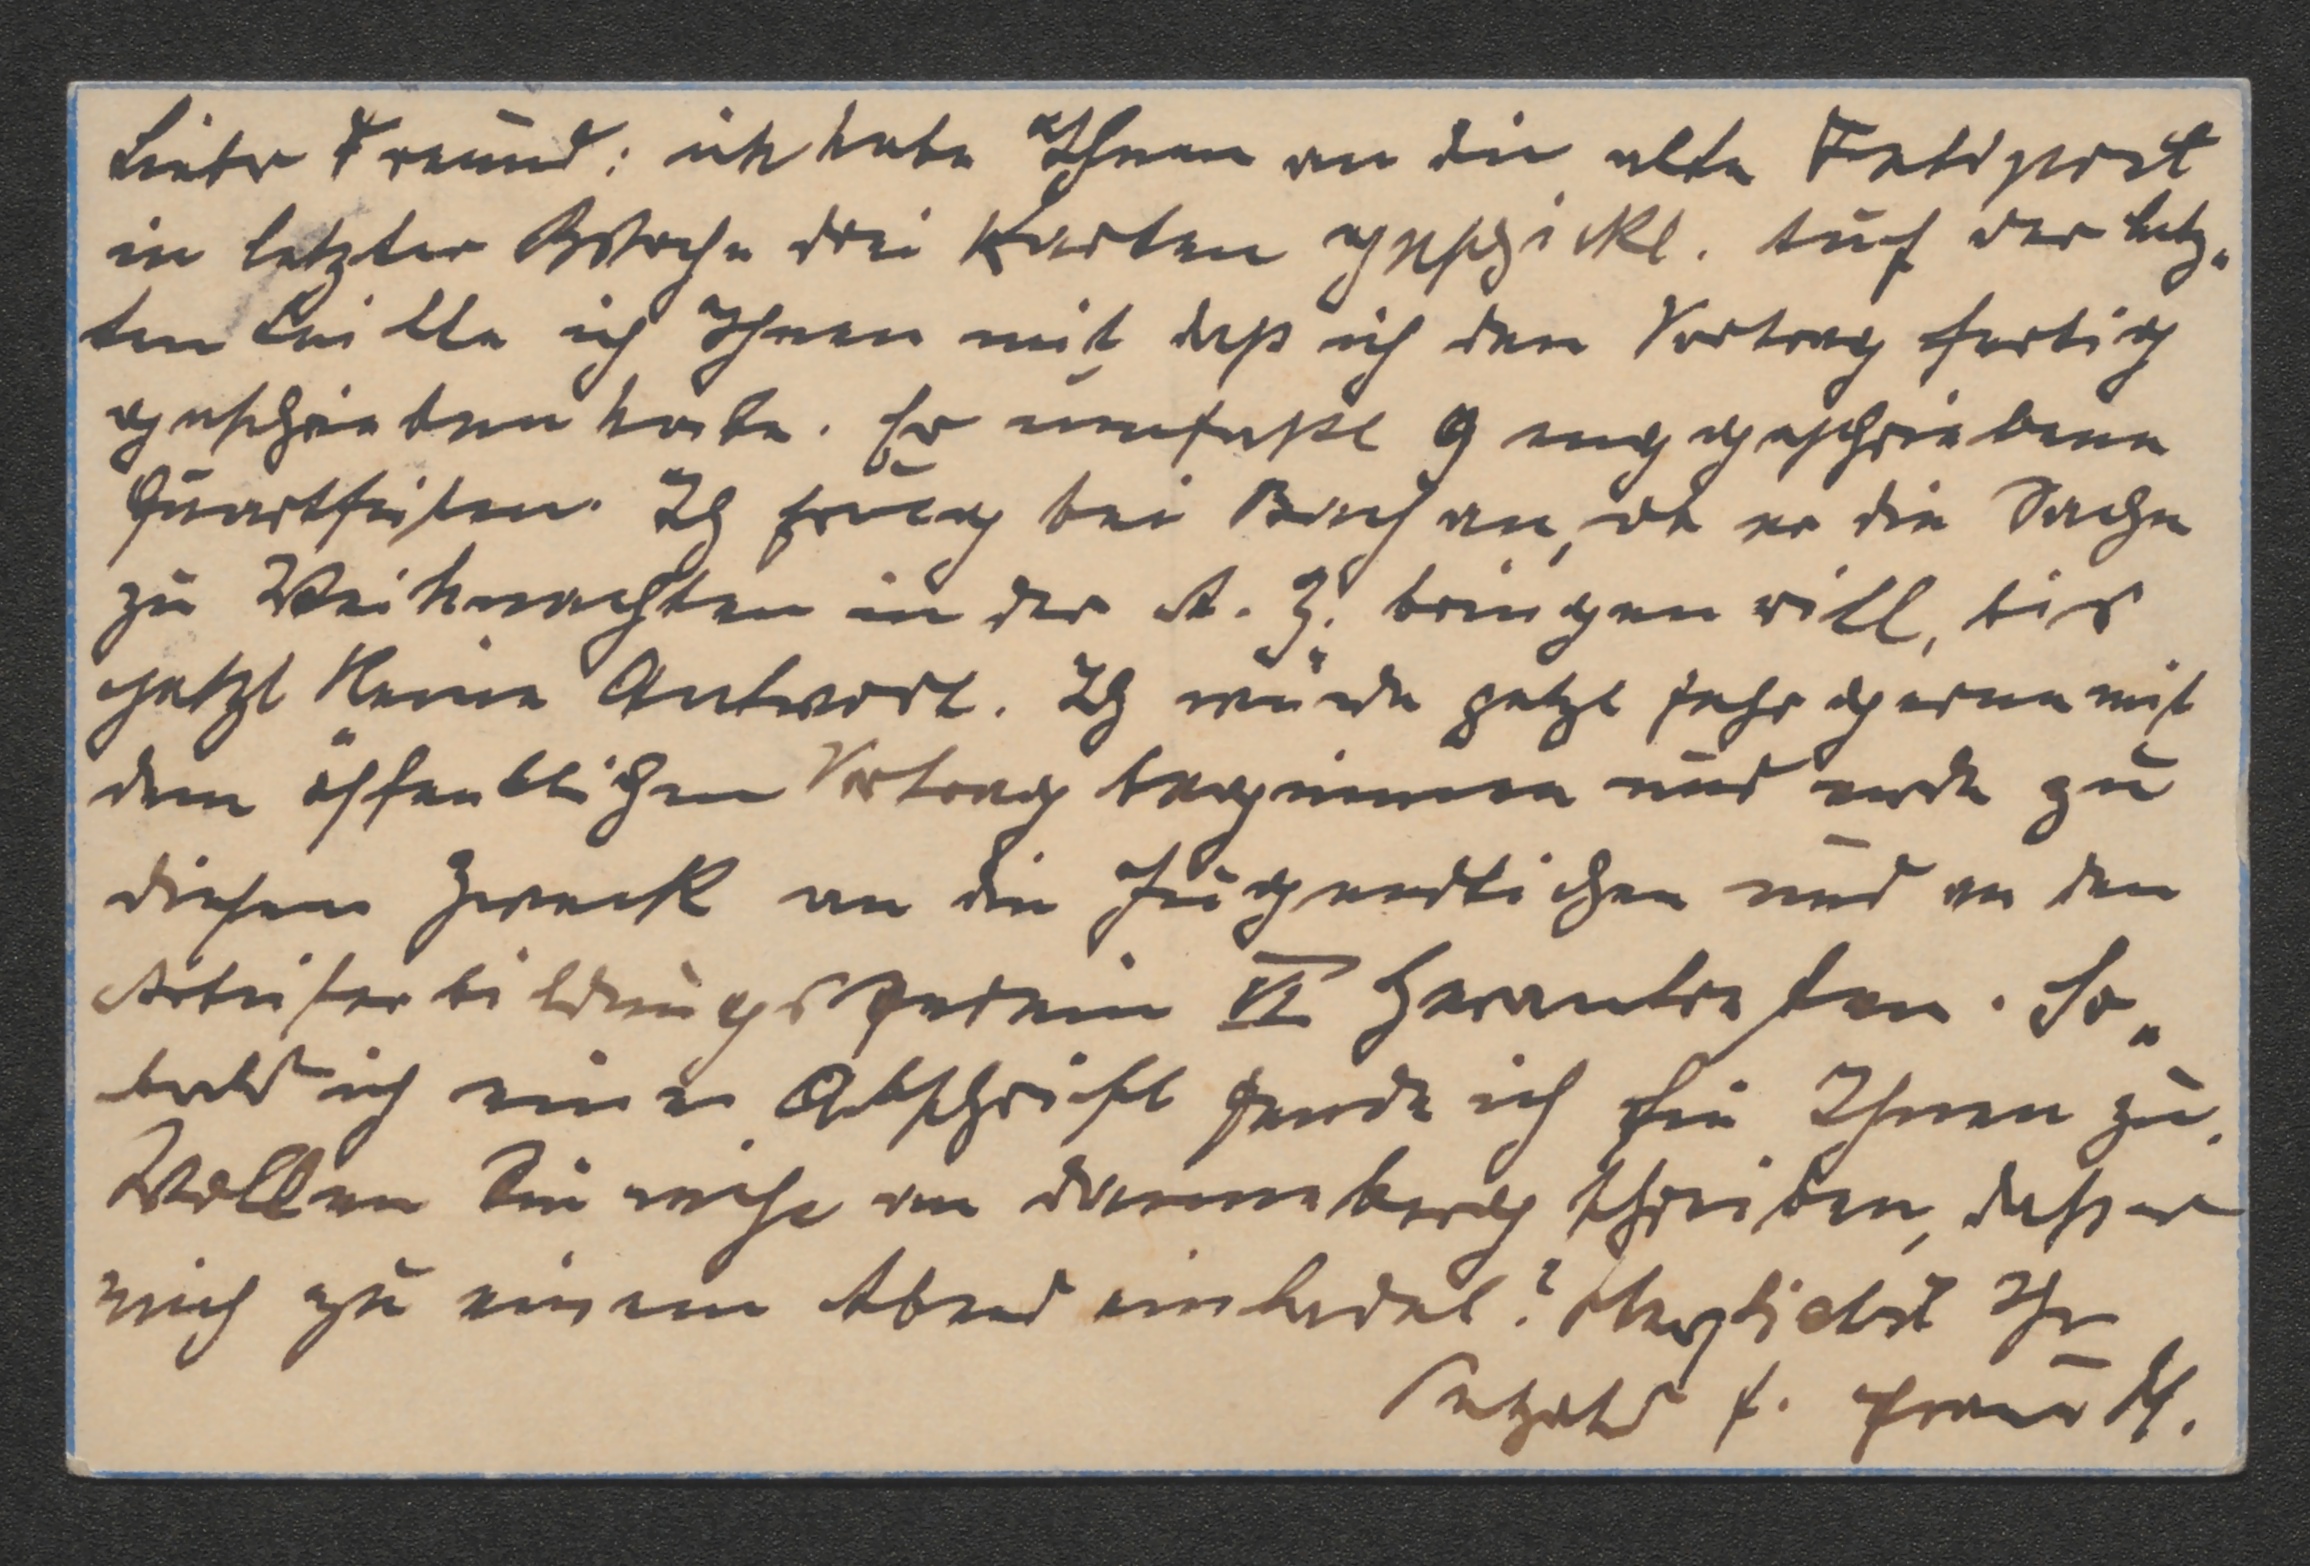 Lieber Freund: ich habe Ihnen an die alte Feldpost
in letzter Woche drei Karten geschickt. Auf der letz-
ten teilte ich Ihnen mit daß ich den Vortrag fertig
geschrieben habe. Er umfaßt 9 eng geschriebene
Quartseiten. Ich frug bei Bach an, ob er die Sache
zu Weihnachten in der A. Z. bringen will, bis
jetzt keine Antwort. Ich würde jetzt sehr gerne mit
dem öffentlichen Vortrag beginnen und werde zu
diesem Zweck an die Jugendlichen und an den
Arbeiterbildungsverein VI herantreten. So-
bald ich eine Abschrift sende ich sie Ihnen zu.
Wollen Sie nicht an Danneberg schreiben, daß er
mich zu einem Abend einladet? Herzlichst Ihr
Petzold f.